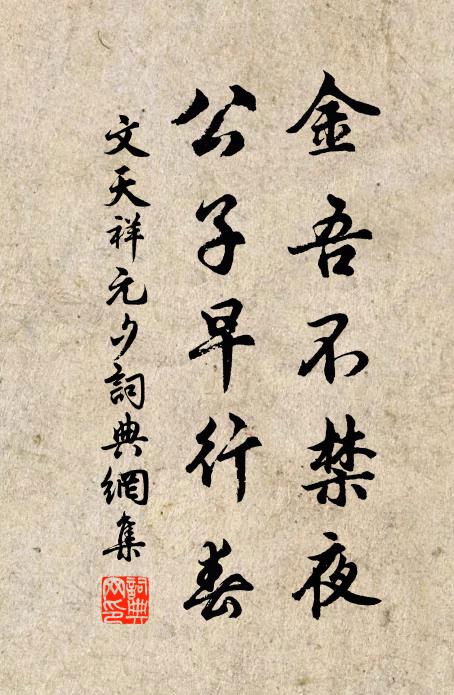 金吾不禁夜
公子早行春
文天祥元夕詞典網集
詞典网印